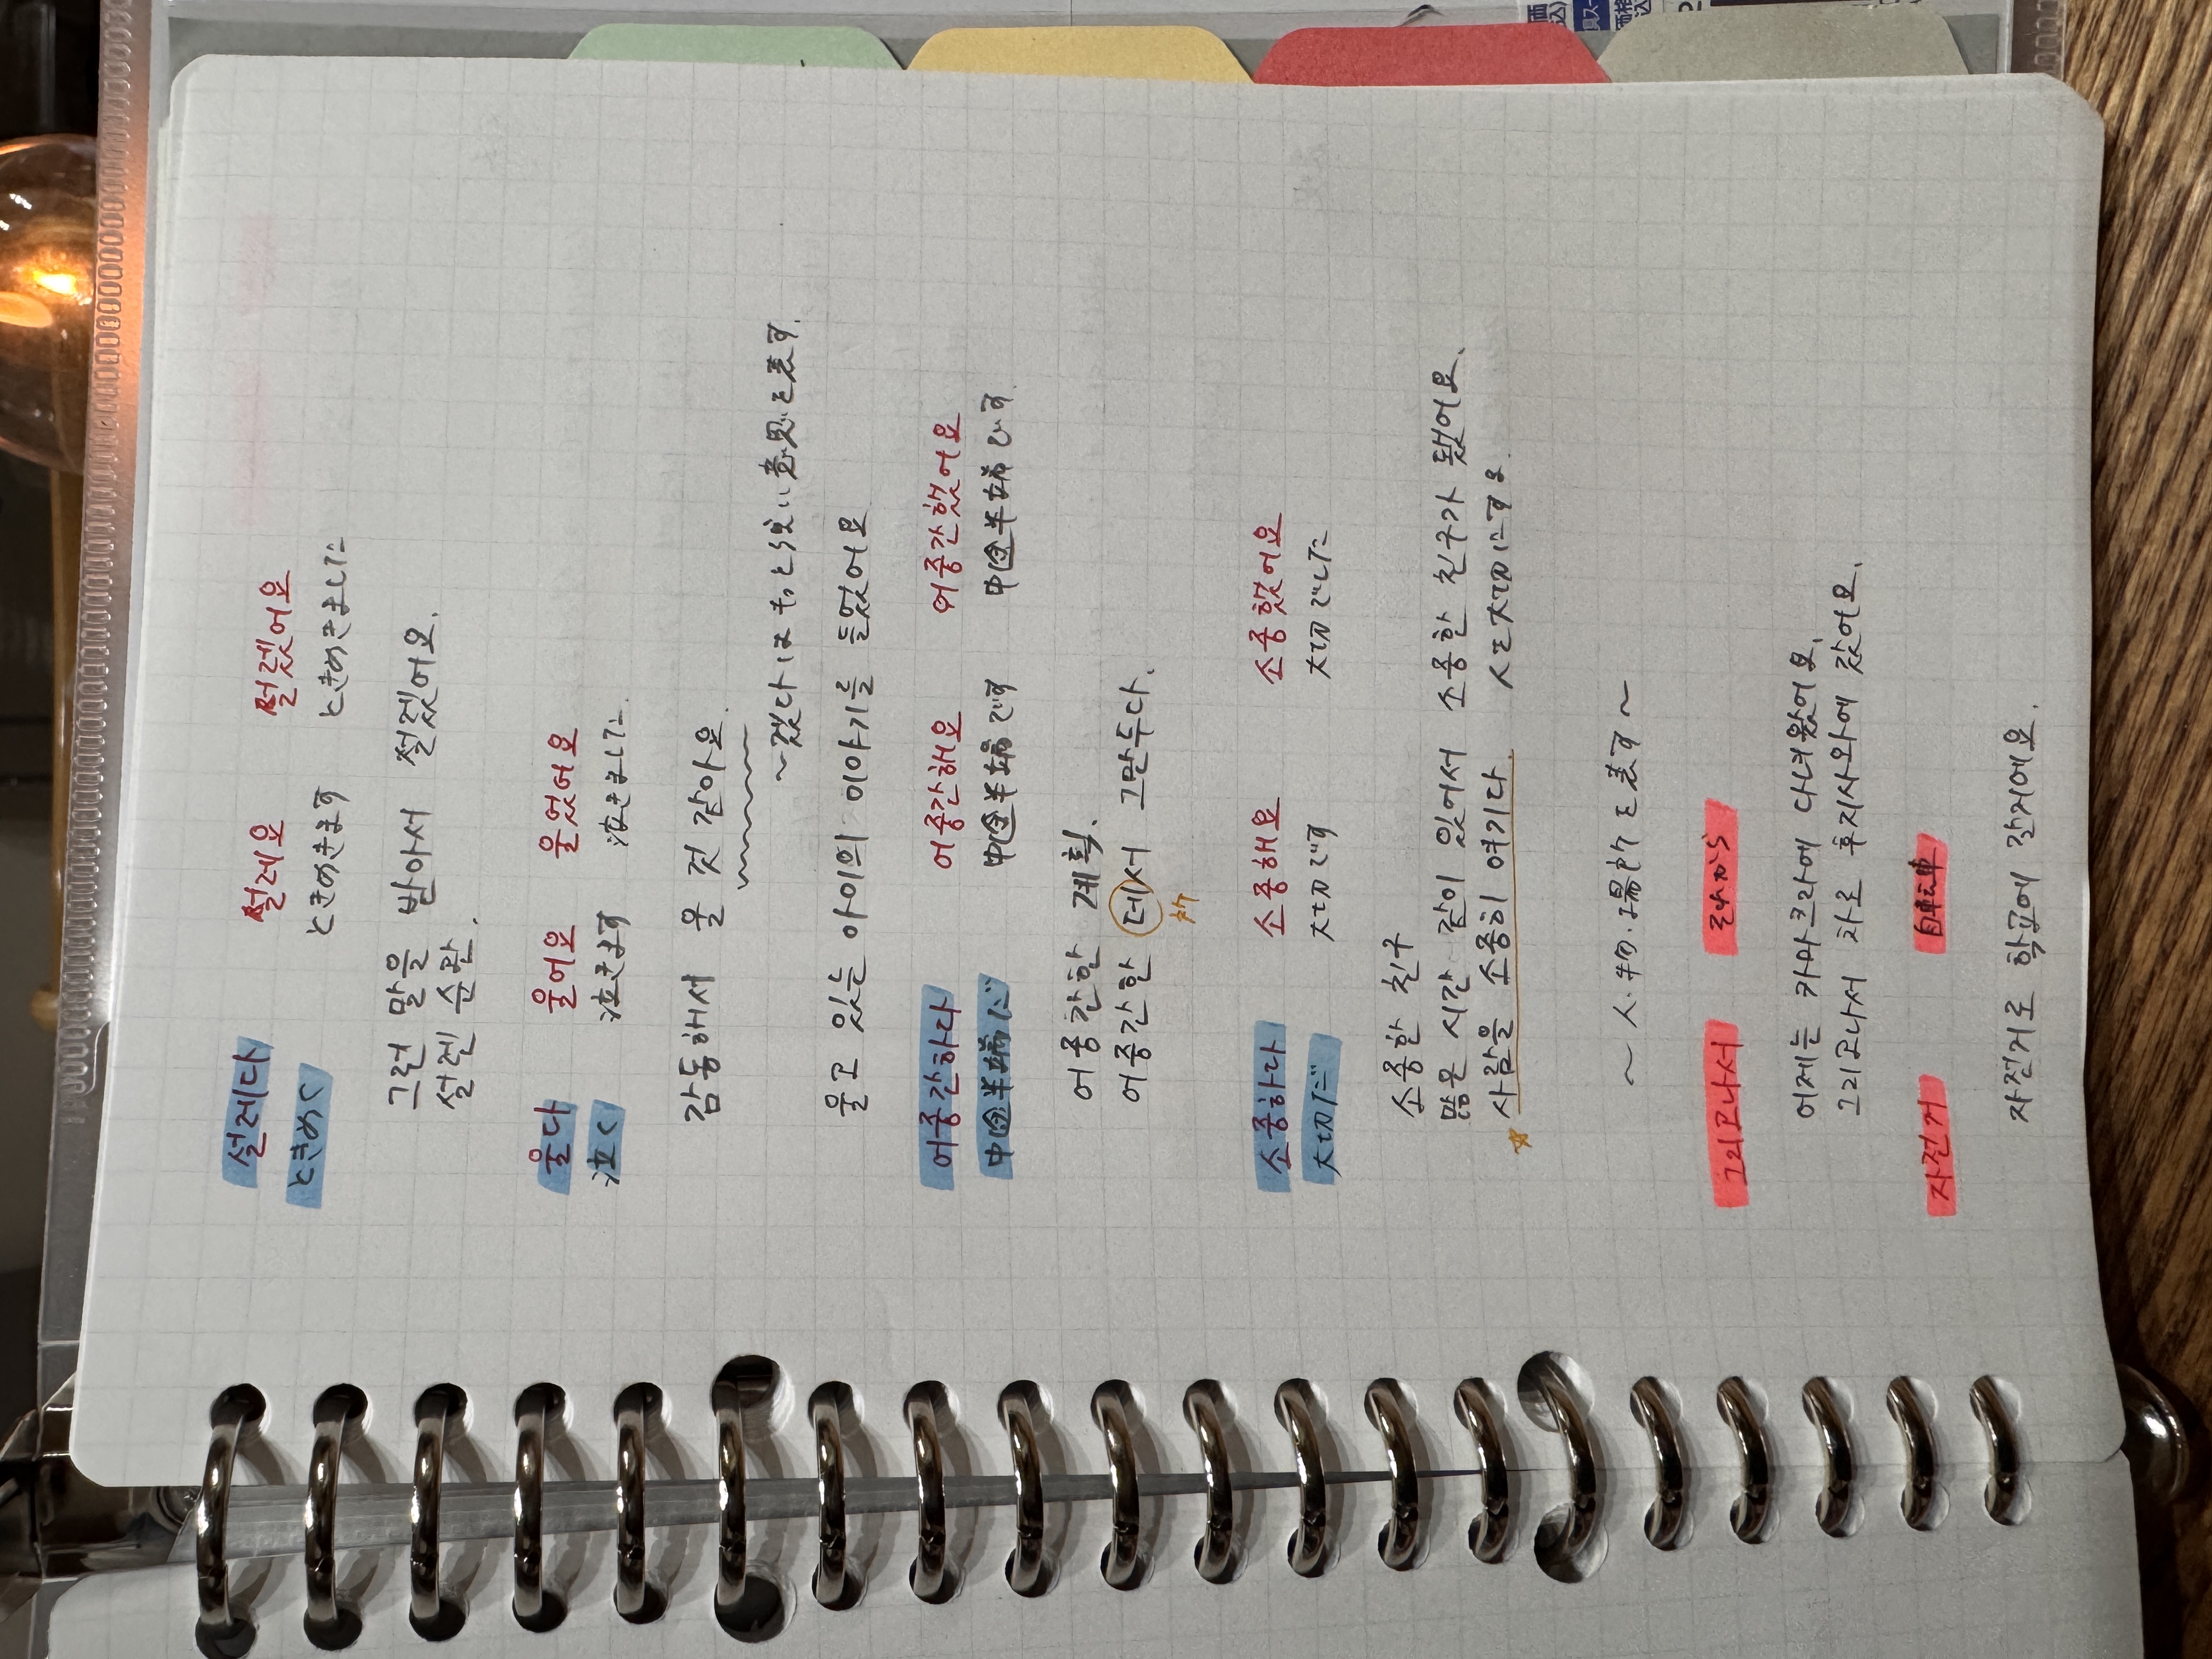 설레다 설레요 설렜어요
ときめく ときめきます ときめきました
그런 말을 받아서 설렜어요.
설렌 순간.
울다 울어요 울었어요
泣く 泣きます 泣きました.
감동해서 울 것 같아요.
~겠다はもっと強い意思を表す.
울고 있는 아이의 이야기를 들었어요
어중간하다 어중간해요 어중간했어요
中途半端だ 中途半端です 中途半端です.
어중간한 계획.
어중간한 데서 그만두다.
所
소중하다 소중해요 소중했어요
大切だ 大切です 大切でした
소중한 친구
많은 시간 같이 있어서 소중한 친구가 됐어요.
사람을 소중히 여기다. 人を大切にする.
~人.物.場所を表す~
그리고나서 それから
어제는 카마크라에 다녀왔어요.
그리고나서 차로 후지사와에 갔어요.
자전거 自転車
자전거로 학교에 갈거에요.
価
込)
価格